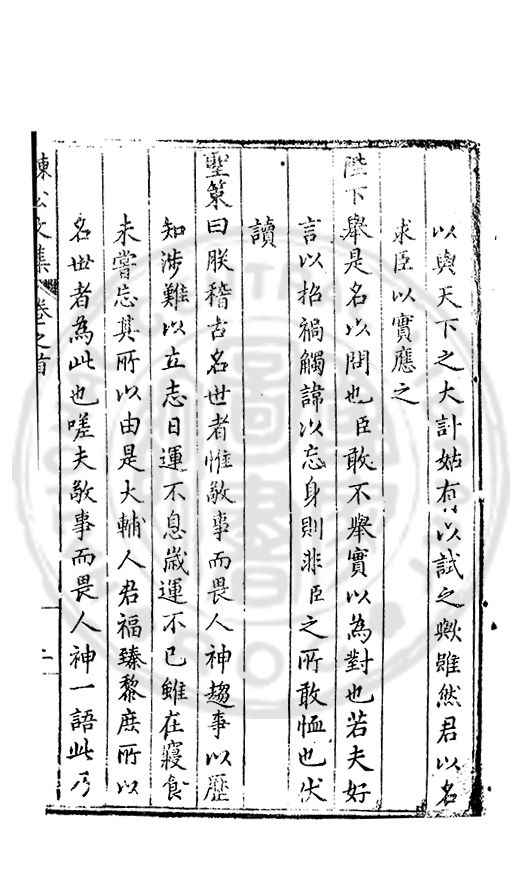 以與天下之大計姑有以試之歟雖然君以名
求臣以實應之
陛下舉是名以問也臣敢不舉實以為對也若夫好
言以招禍觸諱以忘身則非臣之所敢恤也伏
讀
聖策曰朕稽古名世者惟敬事而畏人神趨事以歷
知涉難以立志日運不息歲運不已雖在寢食
未嘗忘其所以由是大輔人君福臻黎庶所以
名世者為此也嗟夫敬事而畏人神一語此乃
練公文集 卷之首